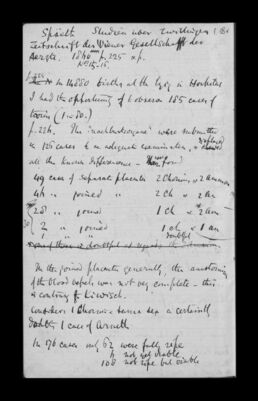 Späeth Studien über Zwillinge
Zeitschrift der Wiener Gesellschaft der
Aerzte. 1860 p. 225 &
No 15. 16.
In 14880 births at the Lying in Hospital
I had the opportunity to observe 185 cases of
twins (1 in 80.)
p. 226. The "nachgeburtsorgane" were submitted
in 126 cases to an adequate examination, & displayed
all the known differences - Thus found
49 cases of separate placenta 2 Chorions, & 2 amnion
47 " joined " 2 Ch & 2 Am
28 " joined 1 ch & 2 am
2 " joined 1 ch & 1 am
doubtful
In the joined placenta generally, the anastomoses
of the blood vessels was not very complete - this
is contrary to Kiwisch.
considers 1 Chorion = same sex as certainly
doubts 1 case of Arneth
In 176 cases only 62 were fully ripe
6 not yet viable
108 not ripe but viable